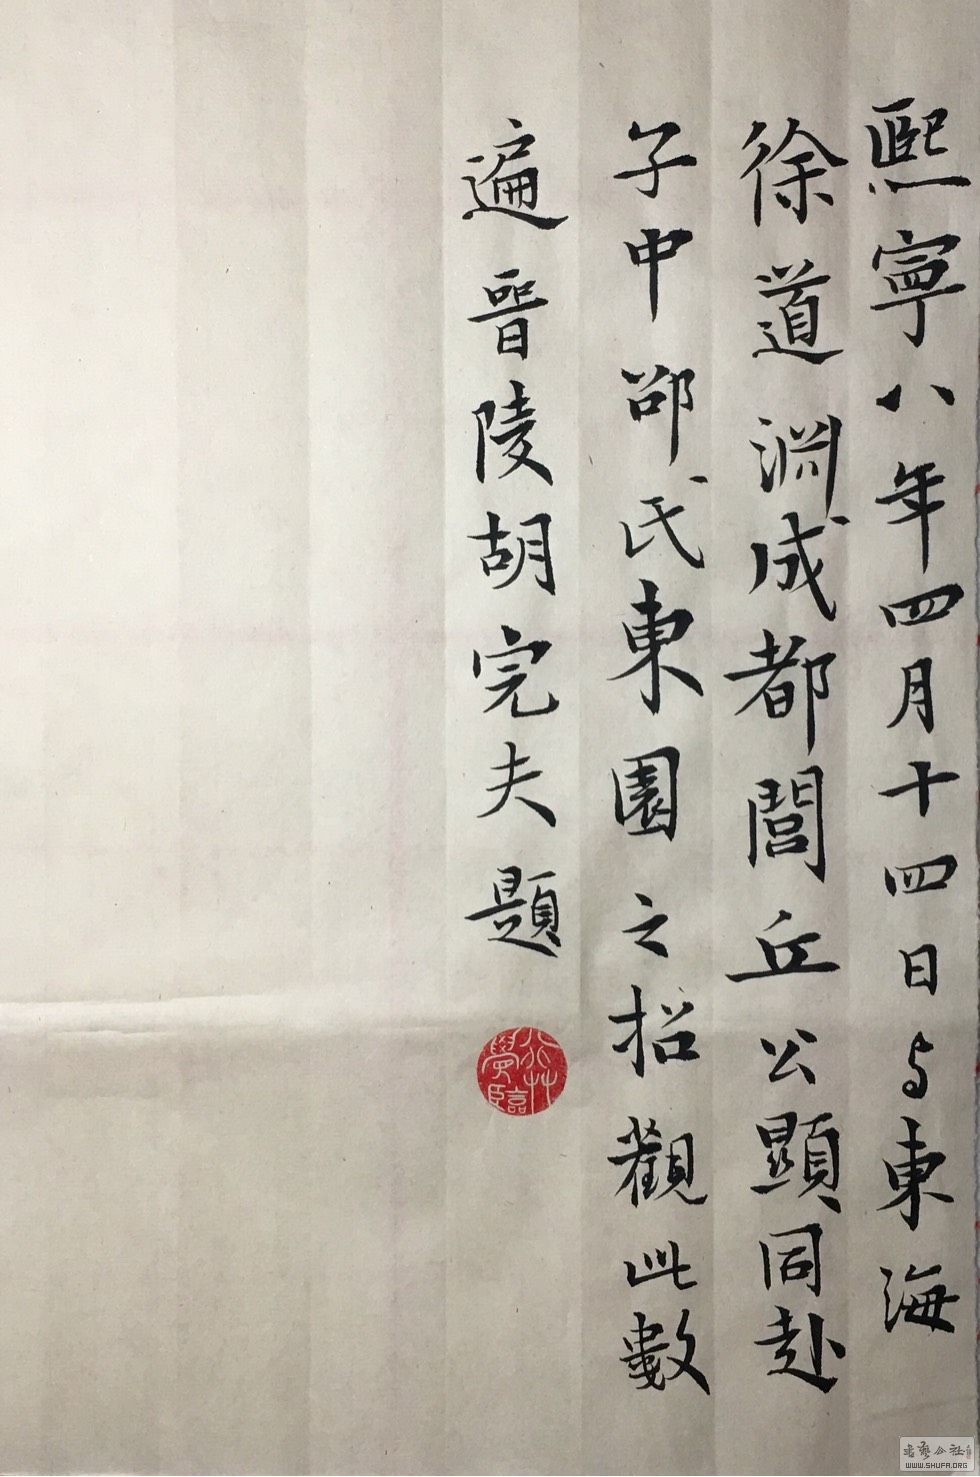 熙寧八年四月十四日与東海
徐道淵成都閭丘公顯同赴
子中邵氏東園之招觀此數
遍晉陵胡完夫題
書藝公社
WWW.SHUFA.ORG